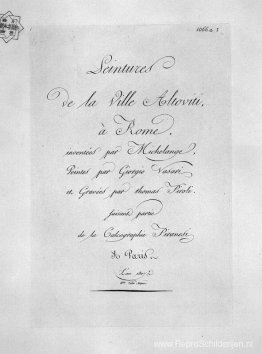 1066 a 1
Peintures
de la Ville Altoviti,
à Rome,
inventées par Michelange,
Peintes par Giorgio Vasari
et Gravées par thomas Piroli.
faisant partie
de la Calcographie Piranesi
à Paris.
L'an 1807
www.ReproSchilderijen.nl